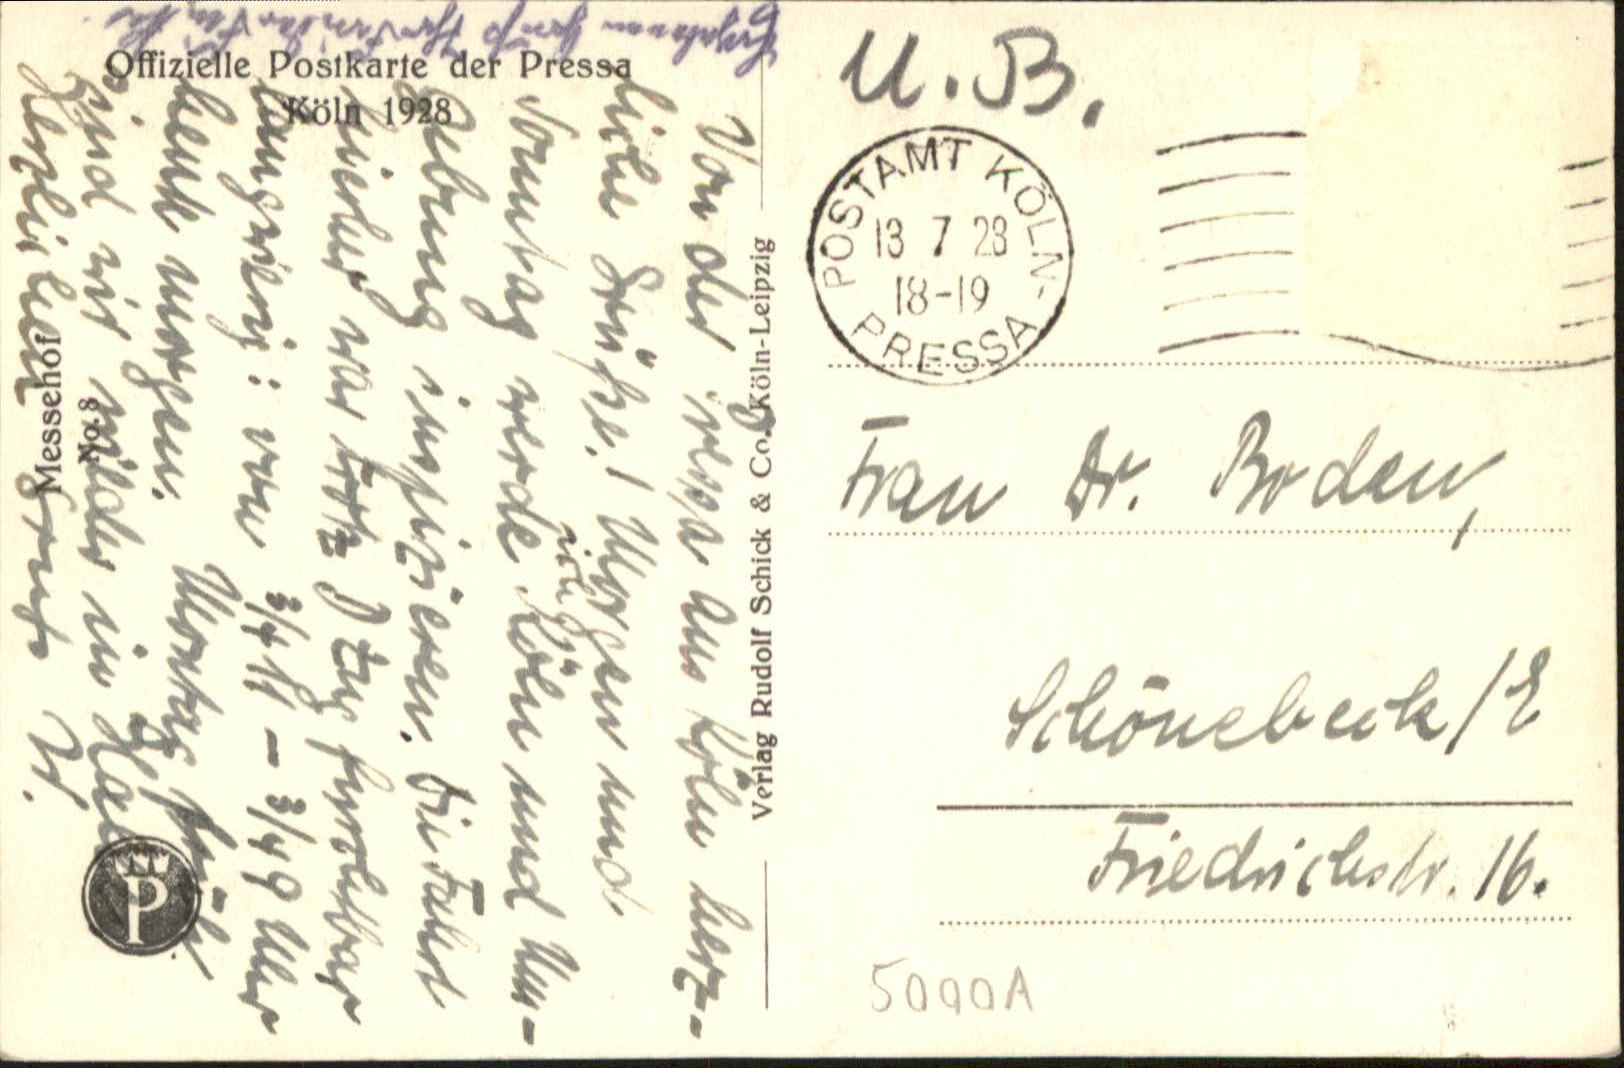 Offizielle Postkarte der Pressa
Köln 1928
Von der Pressa aus Köln herz-
liche Grüße! Morgen und
Sonntag werde ich Köln und Um-
gebung inspizieren. Die Fahrt
hierher war trotz D Zug furchtbar
langwierig: von 3/4 11 - 3/4 9 Uhr
heute morgen. Montag früh
sind wir wieder in
Herzlichen Gruß
W.
Messehof
No. 8
P
Verlag Rudolf Schick & Co. Köln-Leipzig
U.B.
POSTAMT KÖLN-
13 7 28
18-19
PRESSA
Frau Dr. Boden,
Schönebeck/E
Friedrichstr. 16.
5090A